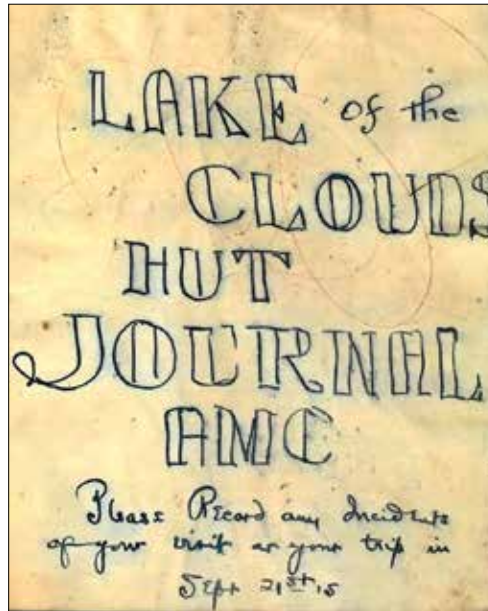 LAKE of the
CLOUDS
HUT
JOURNAL
AMC
Please Record any Incidents
of your visit or your trip in
Sept 21st, 15